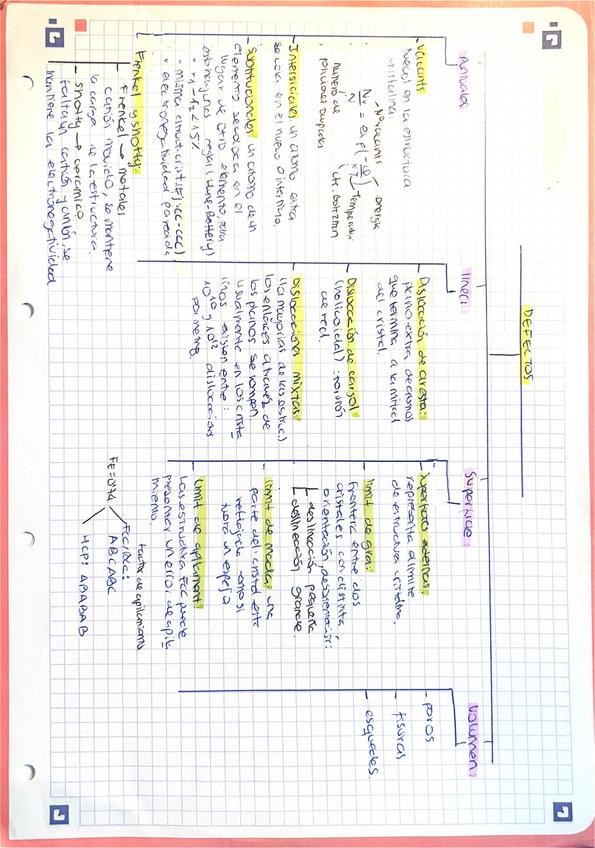 DEFECTOS
Puntual
- Vacants
huecos en la estructura
cristalina
Nº vacants
energia
Nv/N = exp(-Q/KT)
Temperatura
cte. boltzman
número de
posiciones ocupadas
- Intersticiales: un atomo extra
se coloca en el hueco o intersticio.
- Sustitucionales: un átomo de un
elemento se coloca en el
lugar de otro elemento, para
esto hay unas reglas (Hume-Rothery)
• r1 - r2 < 15%
• misma estruct. crist. (Ej: cc-ccc)
• electronegatividad parecida
Frenkel y shotty:
Frenkel → metales
catión movido, se mantiene
la carga de la estructura.
shotty → ceramico
falta un catión y anión, se
mantiene la electronegatividad
lineal
Dislocación de arista:
plano extra de atomos
que termina a la mitad
del cristal.
Dislocación de caragol
(helicoidal): torsión
de red.
Dislocaciones mixtas:
(la mayoria de las estruc.)
los enlaces a traves de
los planos se rompen.
usualmente en los crista
linos existen entre:
10^10 y 10^12 dislocaciones
por
Superficie
superficies externas:
representa el límite
de estructura cristalina.
límit de gra:
frontera entre dos
cristales con distinta
orientación, desorientación:
desalineación pequeña
desalineación grande.
límit de macla: una
parte del cristal está
reflejada como si
hubiera un espejo
límit de apilament:
Las estructura FCC puede
presentar un error de apila
miento.
factor de apilamiento
FE = 0'74
FCC/BCC:
ABCABC
HCP: ABABAB
Volumen
- poros
- fisuras
- esquedes.